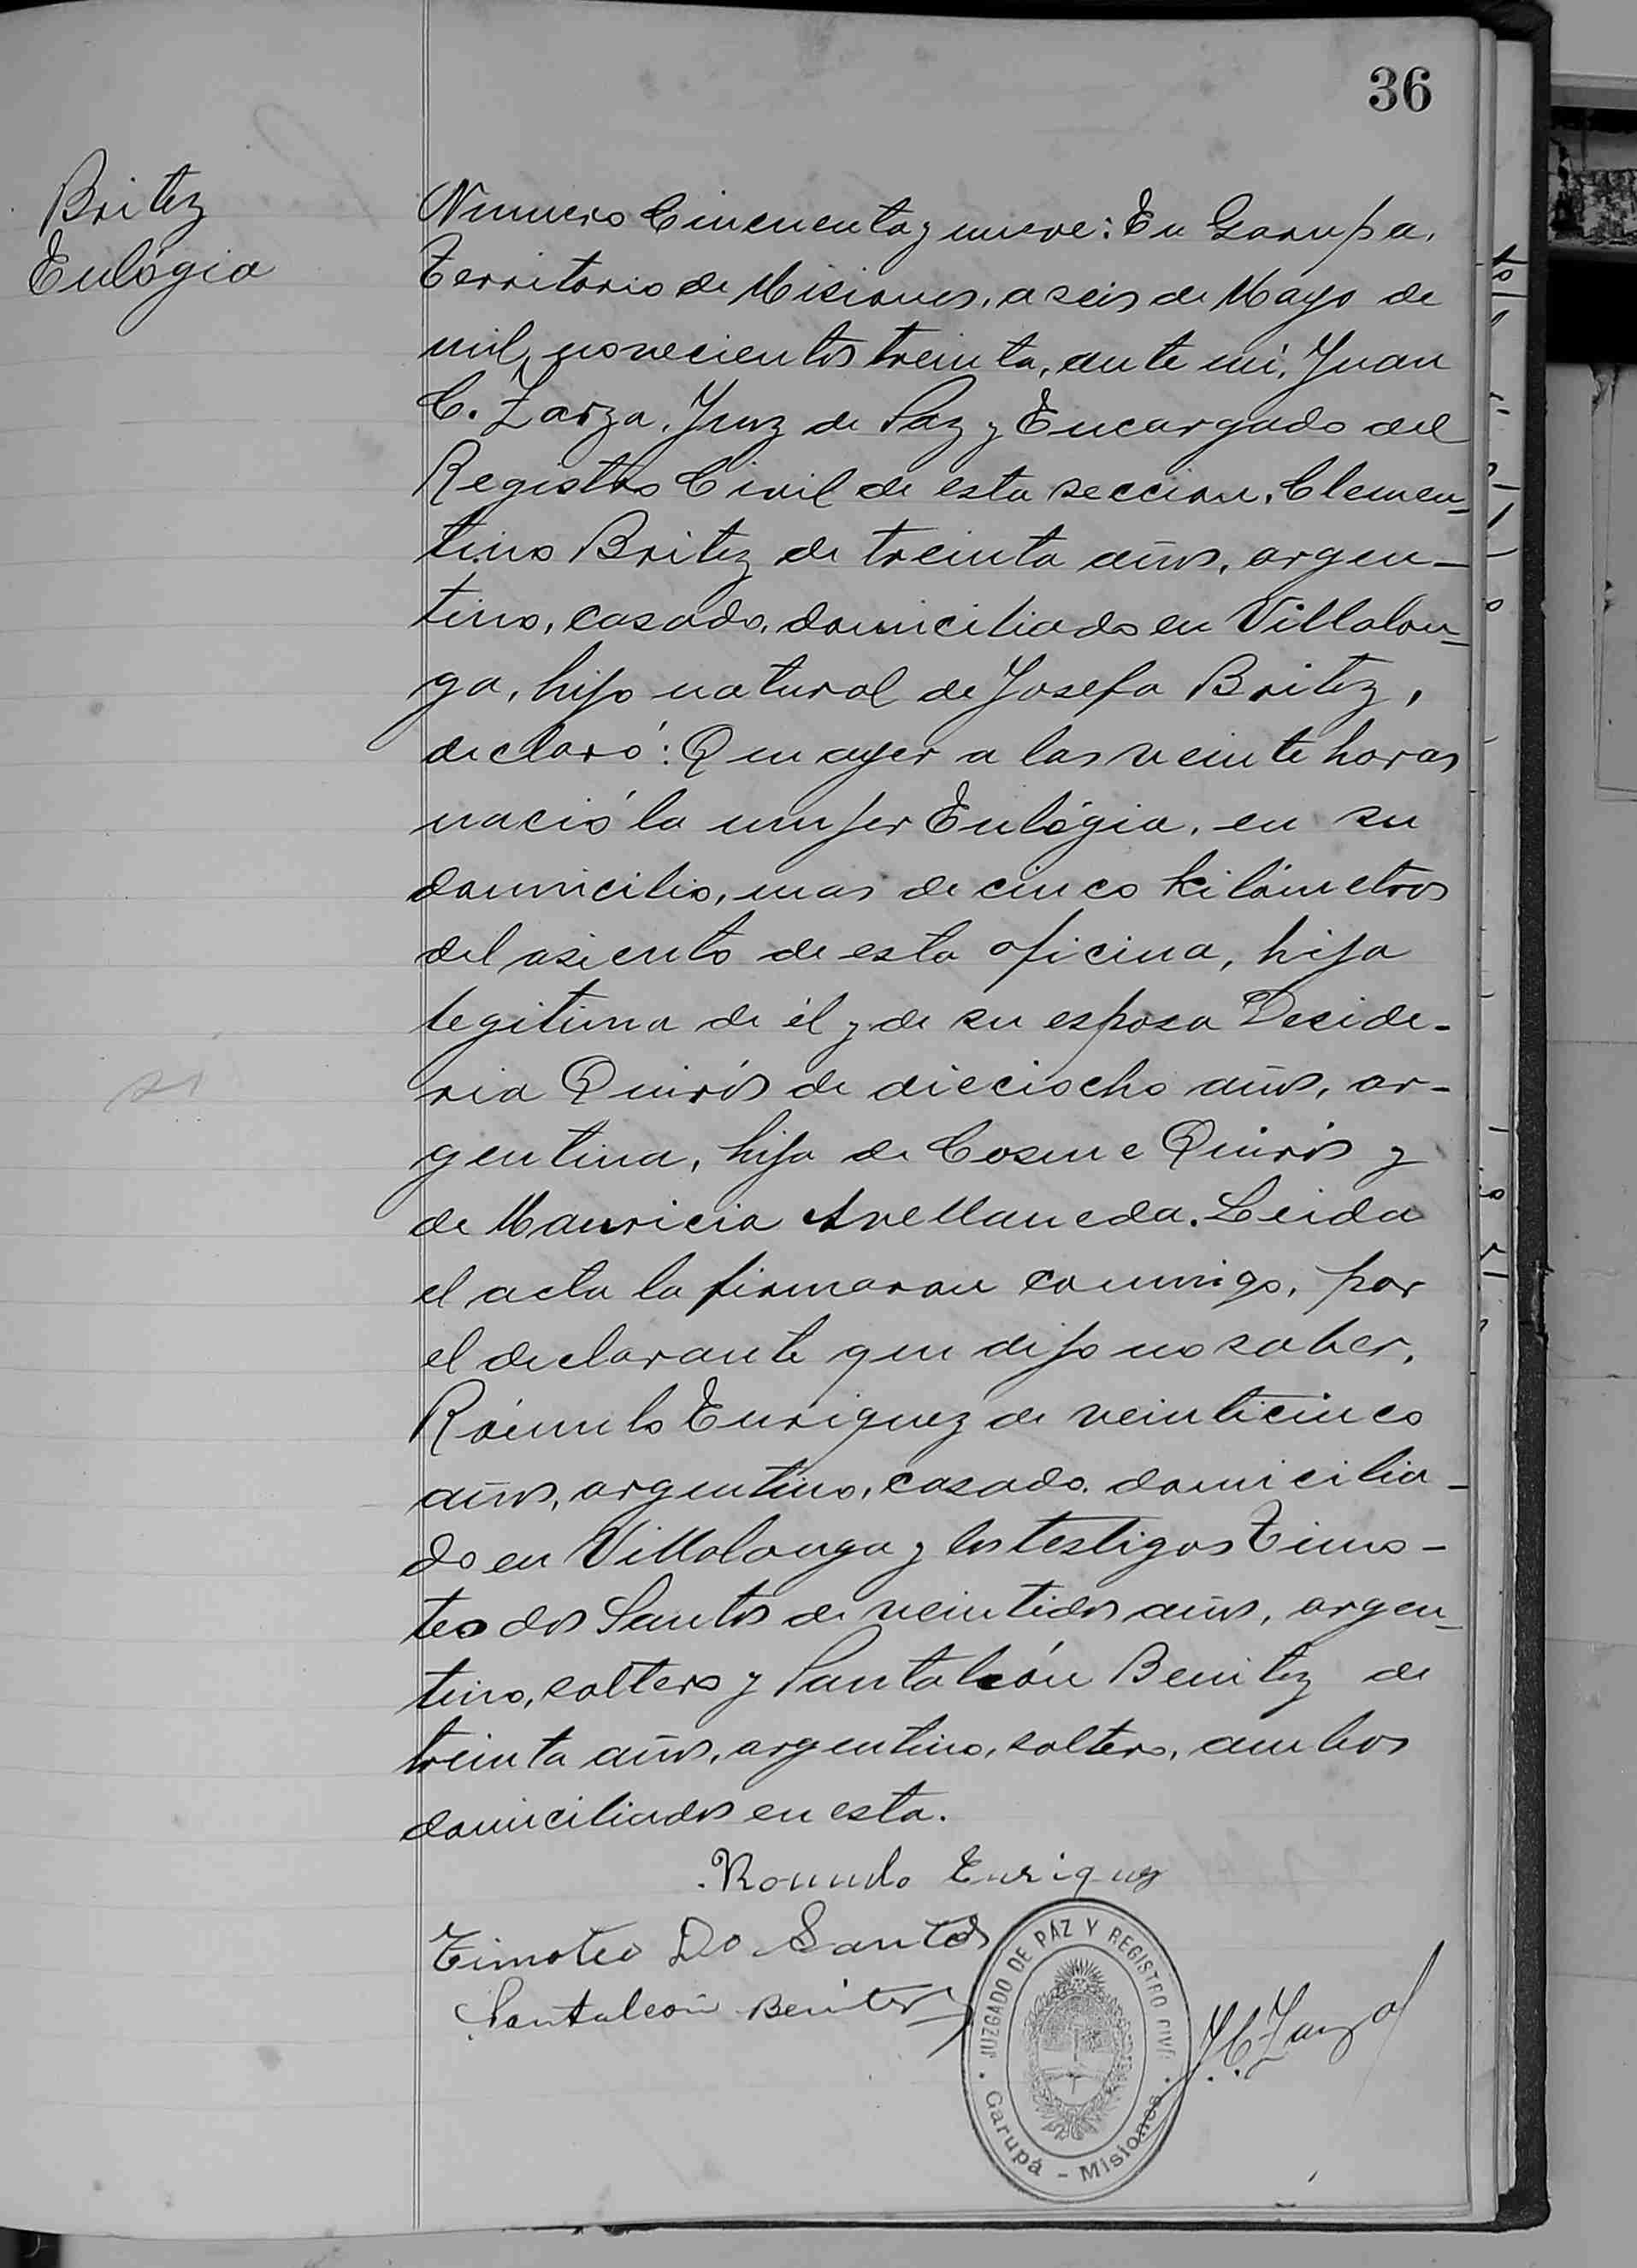 36
Britez
Eulógia
Numero Cincuenta y nueve: En Garupa,
Territorio de Misiones, a seis de Mayo de
mil novecientos treinta, ante mi, Juan
C. Zarza, Juez de Paz y Encargado del
Registro Civil de esta seccion, Clemen-
tino Britez de treinta años, argen-
tino, casado, domiciliado en Villalon-
ga, hijo natural de Josefa Britez,
declaró: Que ayer a las veinte horas
nació la mujer Eulógia, en su
domicilio, mas de cinco kilómetros
del asiento de esta oficina, hija
legitima de él y de su esposa Deside-
ria Quirós de dieciocho años, ar-
gentina, hija de Cosme Quirós y
de Mauricia Avellaneda. Leida
el acta la firmaron conmigo, por
el declarante que dijo no saber,
Rómulo Enriquez de veinticinco
años, argentino, casado, domicilia-
do en Villalonga y los testigos Timo-
teo dos Santos de veintidos años, argen-
tino, soltero y Pantaleón Benitez de
treinta años, argentino, soltero, ambos
domiciliados en esta.
Romulo Enriquez
Timoteo Do Santos
Pantaleon Benitez
J. C. Zarza
JUZGADO DE PAZ Y REGISTRO CIVIL
Garupá - Misiones